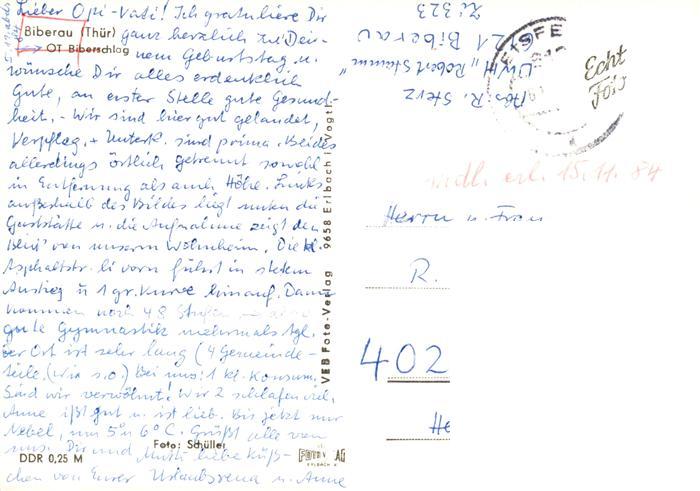 Lieber Opi-Vati! Ich gratuliere Dir
Biberau (Thür) ganz herzlich zu Dei-
OT Biberschlag
nem Geburtstag u.
wünsche Dir alles erdenklich
Gute, an erster Stelle gute Gesund-
heit. - Wir sind hier gut gelandet,
Verpfleg. + Unterk. sind prima. Beides
allerdings örtlich getrennt sowohl
in Entfernung als auch Höhe. Links
außerhalb des Bildes liegt unten die
Gaststätte u. die Aufnahme zeigt den
Blick von unserm Wohnheim. Die kl.
Asphaltstr. li vorn führt in stetem
Anstieg ü 1 gr. Kurve hinauf. Dann
kommen noch 48 Stufen
gute Gymnastik mehrmals tgl.
Der Ort ist sehr lang (4 Gemeinde-
teile, (wie s.o.) Bei uns: 1 kl. Konsum.
Sind wir verwöhnt! Wir 2 schlafen viel,
Anne ißt gut u. ist lieb. Bis jetzt nur
Nebel, um 5 u 6°C. Grüßt alle von
uns. Dir und Mutti liebe Küß-
Foto: Schüller
DDR 0,25 M
chen von Eurer u. Anne
VEB Foto-Verlag 9658 Erlbach i. Vogtl.
Abs. R. Sterz
UWH "Robert Stamm"
Biberau
Zi 323
Echt
Foto
erl. 15.11.84
Herrn u. Frau
R.
402
He